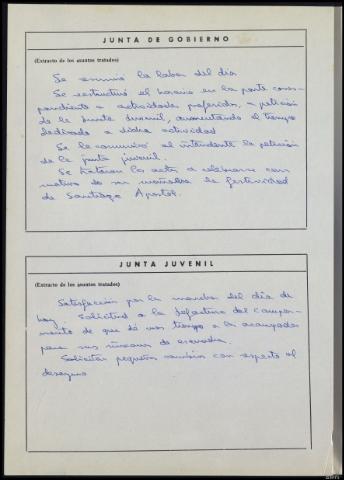 JUNTA DE GOBIERNO
(Extracto de los asuntos tratados)
Se enunció la labor del día
Se reestructuró el horario en la parte corres-
pondiente a actividades preferidas, a petición
de la Junta Juvenil, aumentando el tiempo
dedicado a dicha actividad
Se le comunicó al intendente la petición
de la junta juvenil.
Se trataron los actos a celebrarse con
motivo de ser mañana la festividad
de Santiago Apostol.
JUNTA JUVENIL
(Extracto de los asuntos tratados)
Satisfacción por la marcha del día de
hoy. Solicitud a la Jefatura del campa-
mento de que dé mas tiempo a los acampados
para sus rincones de escuadra.
Solicitar pequeños cambios con respecto al
desayuno